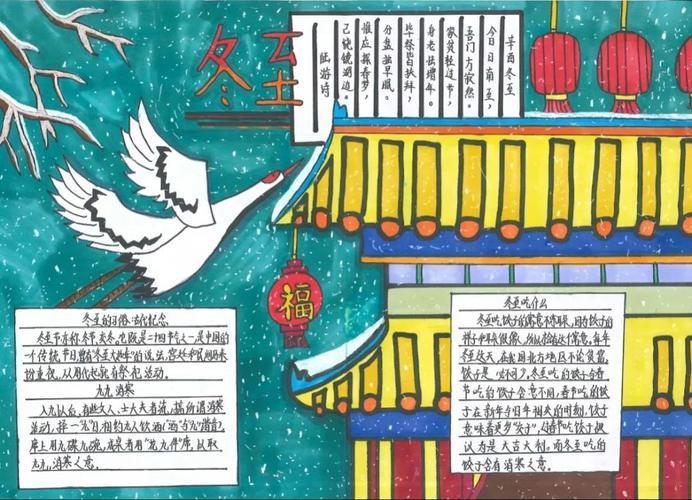 冬至
辛酉冬至
今日日南至，
吾门方寂然。
家贫轻过节，
身老怯增年。
毕祭皆扶拜，
分盘独早眠。
惟应探春梦，
已绕镜湖边。
陆游诗
福
冬至的习俗:古代纪念
冬至节亦称冬节、交冬。它既是二十四节气之一,是中国的
一个传统节日,曾有"冬至大如年"的说法,宫廷和民间历来
十分重视,从周代起就有祭祀活动。
九九消寒
入九以后,有些文人、士大夫者流,搞所谓消寒
活动,择一"九"日,相约九人饮酒("酒"与"九"谐音),
席上用九碟九碗,成桌者用"花九件"席,以取
九九消寒之意。
冬至吃什么
冬至吃饺子的寓意不冻耳朵,因为饺子的
样子和耳朵很像,所以给的这个寓意,每年
冬至这天,在我国北方地区不论贫富,
饺子是必不可少,冬至吃的饺子与春
节吃的饺子含意不同,春节吃的饺
子在新年与旧年相交的时刻,饺子
意味着更岁"交子",过春节吃饺子被
认为是大吉大利。而冬至吃的
饺子含有消寒之意。